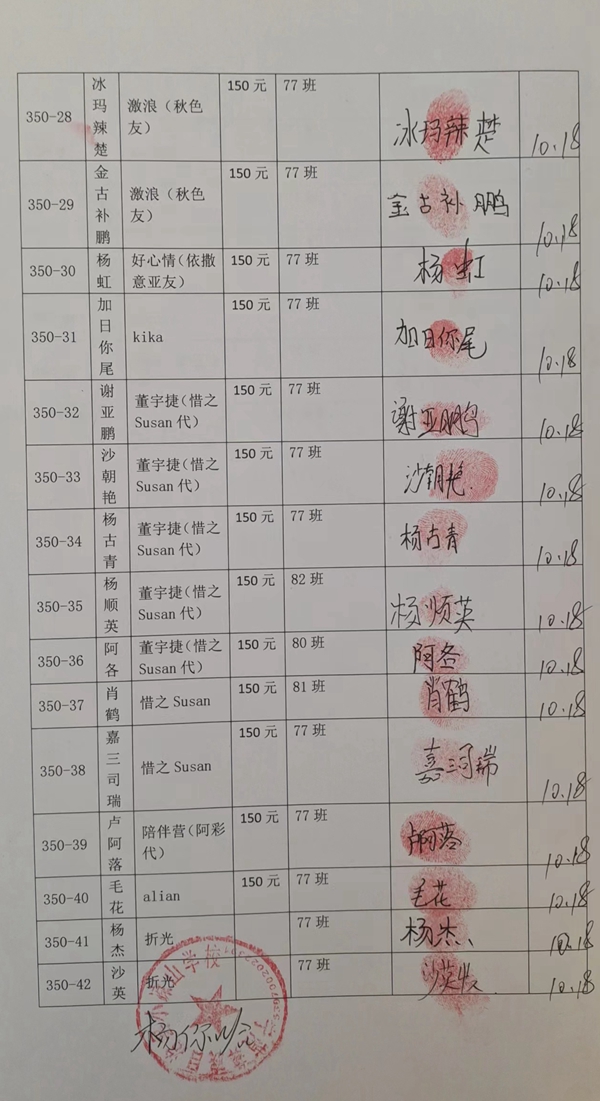 350-28 冰玛辣楚 激浪（秋色友） 150 元 77 班 冰玛辣楚 10.18
350-29 金古补鹏 激浪（秋色友） 150 元 77 班 金古补鹏 10.18
350-30 杨虹 好心情（依撒意亚友） 150 元 77 班 杨虹 10.18
350-31 加日你尾 kika 150 元 77 班 加日你尾 10.18
350-32 谢亚鹏 董宇捷（惜之Susan 代） 150 元 77 班 谢亚鹏 10.18
350-33 沙朝艳 董宇捷（惜之Susan 代） 150 元 77 班 沙朝艳 10.18
350-34 杨古青 董宇捷（惜之Susan 代） 150 元 77 班 杨古青 10.18
350-35 杨顺英 董宇捷（惜之Susan 代） 150 元 82 班 杨顺英 10.18
350-36 阿各 董宇捷（惜之Susan 代） 150 元 80 班 阿各 10.18
350-37 肖鹤 惜之 Susan 150 元 81 班 肖鹤 10.18
350-38 嘉三司瑞 惜之 Susan 150 元 77 班 嘉三司瑞 10.18
350-39 卢阿落 陪伴营（阿彩代） 150 元 77 班 卢阿落 10.18
350-40 毛花 alian 150 元 77 班 毛花 10.18
350-41 杨杰 折光 77 班 杨杰 10.18
350-42 沙英 折光 77 班 沙英 10.18